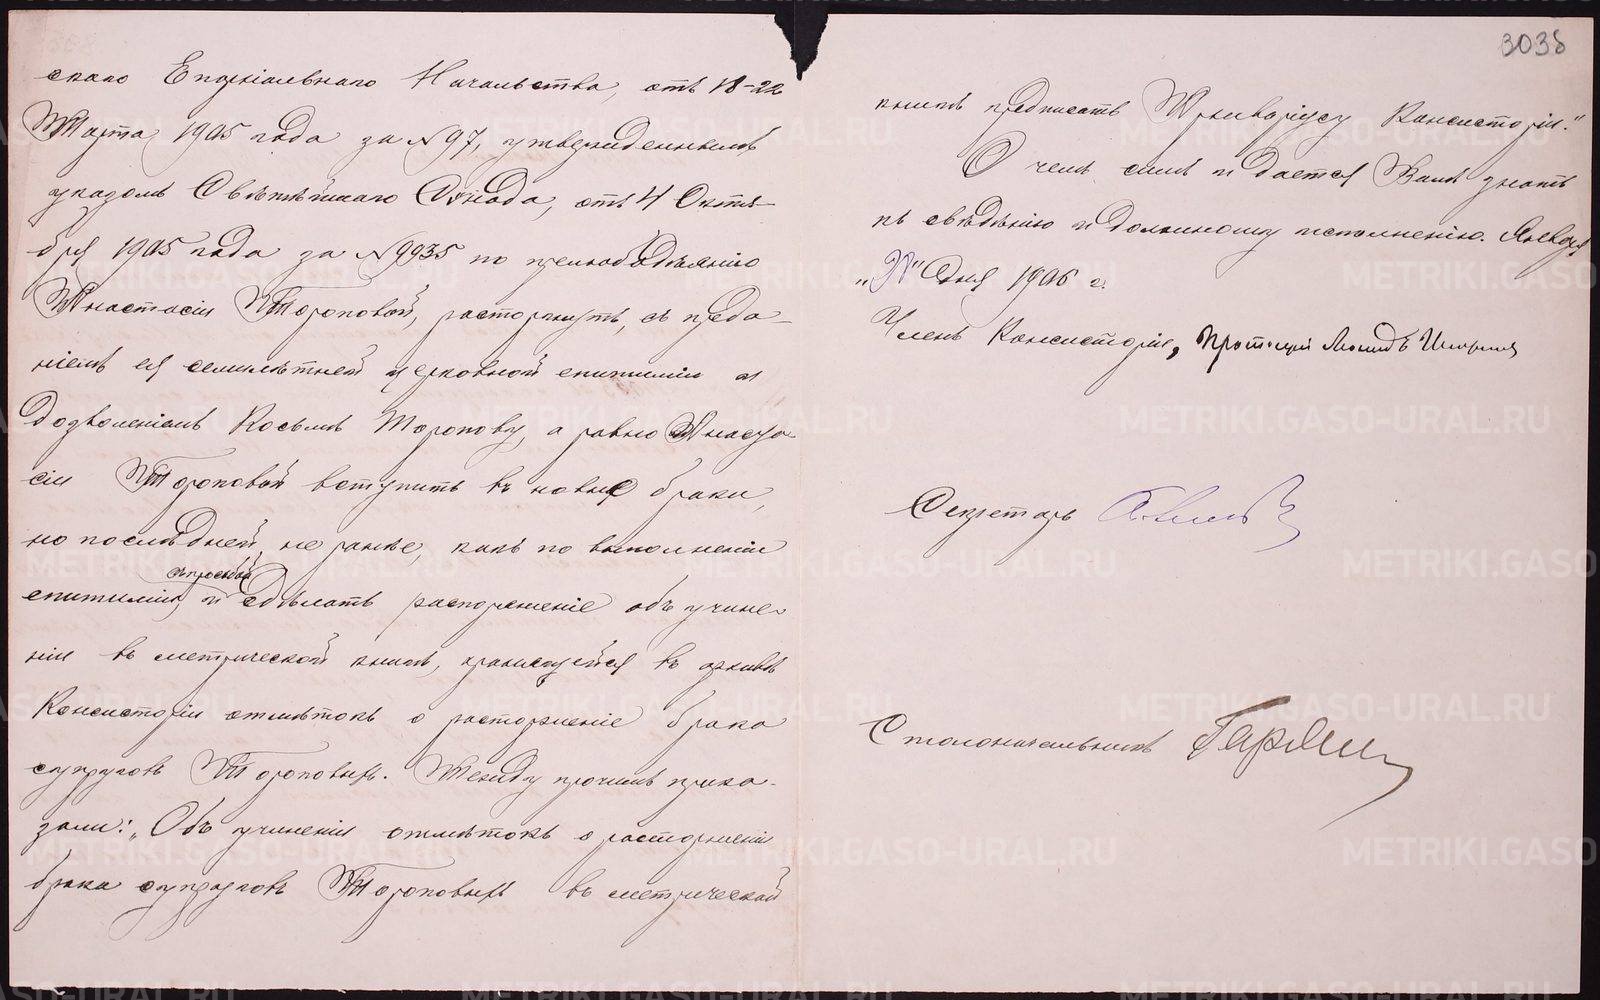 скаго Епархіальнаго Начальства, отъ 18-22
Марта 1905 года за №97, утвержденнымъ
указомъ Святѣйшаго Сѵнода, отъ 4 Октя-
бря 1905 года за №9935 по прелюбодѣянію
Анастасіи Тороповой, расторгнутъ, съ преда-
ніемъ ея семилѣтней церковной епитиміи и
дозволеніемъ Косьмѣ Торопову, а равно Анаста-
сіи Тороповой вступить въ новые браки,
но послѣдней не ранѣе, какъ по выполненіи
епитиміи, и сдѣлать распоряженіе объ учине-
ніи въ метрической книгѣ, хранящейся въ архивѣ
Консисторіи отмѣтокъ о расторженіе брака
супруговъ Тороповыхъ. Между прочимъ прика-
зали: „Объ учиненіи отмѣтокъ о расторженіи
брака супруговъ Тороповыхъ въ метрической
3038
книгѣ предписать Архиваріусу Консисторіи."
О чемъ симъ и дается Вамъ знать
къ свѣдѣнію и должному исполненію. Января
" дня 1906 г.
Членъ Консисторіи, Протоіерей
Секретарь
Столоначальникъ
METRIKI.GASO-URAL.RU